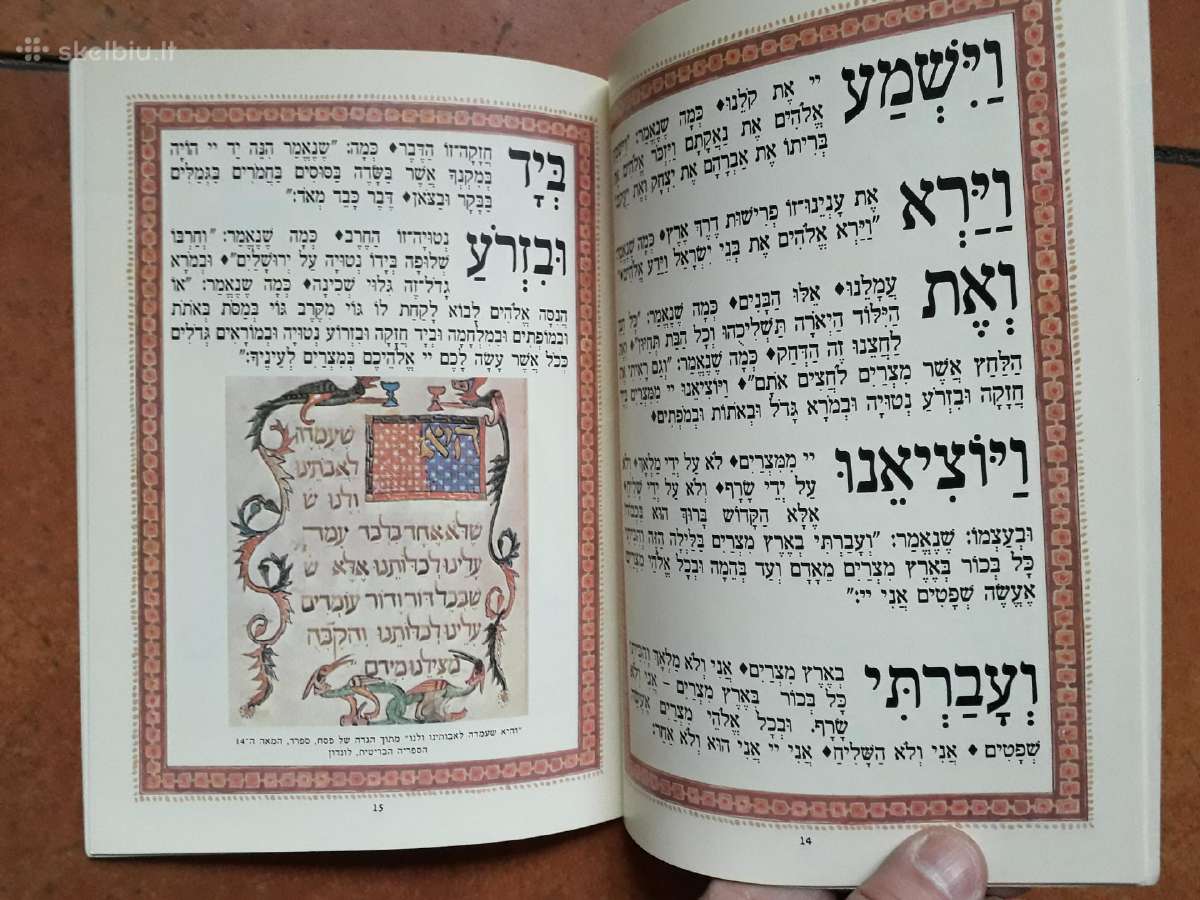 skelbiu.lt
וַיִּשְׁמַע
יי אֶת קֹלֵנוּ♦ כְּמָה שֶׁנֶּאֱמַר:
אֱלֹהִים אֶת נַאֲקָתָם וַיִּזְכֹּר אֱלֹהִים אֶת
בְּרִיתוֹ אֶת אַבְרָהָם אֶת יִצְחָק וְאֶת
וַיַּרְא
אֶת עָנְיֵנוּ־זוֹ פְּרִישׁוּת דֶּרֶךְ אֶרֶץ♦ כְּמָה שֶׁנֶּאֱמַר
"וַיַּרְא אֱלֹהִים אֶת בְּנֵי יִשְׂרָאֵל וַיֵּדַע אֱלֹהִים"♦
וְאֶת
עֲמָלֵנוּ♦ אֵלּוּ הַבָּנִים♦ כְּמָה שֶׁנֶּאֱמַר: "כָּל הַבֵּן
הַיִּלּוֹד הַיְאֹרָה תַּשְׁלִיכֻהוּ וְכָל הַבַּת תְּחַיּוּן"♦
לַחֲצֵנוּ זֶה הַדְּחַק♦ כְּמָה שֶׁנֶּאֱמַר: "וְגַם רָאִיתִי אֶת
הַלַּחַץ אֲשֶׁר מִצְרַיִם לֹחֲצִים אֹתָם"♦ וַיּוֹצִיאֵנוּ יי מִמִּצְרַיִם בְּיָד
חֲזָקָה וּבִזְרֹעַ נְטוּיָה וּבְמֹרָא גָּדֹל וּבְאֹתוֹת וּבְמֹפְתִים♦
וַיּוֹצִיאֵנוּ
יי מִמִּצְרַיִם♦ לֹא עַל יְדֵי מַלְאָךְ♦ וְלֹא
עַל יְדֵי שָׂרָף♦ וְלֹא עַל יְדֵי שָׁלִיחַ♦
אֶלָּא הַקָּדוֹשׁ בָּרוּךְ הוּא בִּכְבוֹדוֹ
וּבְעַצְמוֹ: שֶׁנֶּאֱמַר: "וְעָבַרְתִּי בְאֶרֶץ מִצְרַיִם בַּלַּיְלָה הַזֶּה וְהִכֵּיתִי
כָּל בְּכוֹר בְּאֶרֶץ מִצְרַיִם מֵאָדָם וְעַד בְּהֵמָה וּבְכָל אֱלֹהֵי מִצְרַיִם
אֶעֱשֶׂה שְׁפָטִים אֲנִי יי:"
וְעָבַרְתִּי
בְאֶרֶץ מִצְרַיִם♦ אֲנִי וְלֹא מַלְאָךְ וְהִכֵּיתִי
כָּל בְּכוֹר♦ בְּאֶרֶץ מִצְרַיִם – אֲנִי וְלֹא
שָׂרָף. וּבְכָל אֱלֹהֵי מִצְרַיִם אֶעֱשֶׂה
שְׁפָטִים ♦ אֲנִי וְלֹא הַשָּׁלִיחַ♦ אֲנִי יי אֲנִי הוּא וְלֹא אַחֵר:
14
בְּיָד
חֲזָקָה־זוֹ הַדֶּבֶר♦ כְּמָה: "שֶׁנֶּאֱמַר הִנֵּה יַד יי הוֹיָה
בְּמִקְנְךָ אֲשֶׁר בַּשָּׂדֶה בַּסּוּסִים בַּחֲמֹרִים בַּגְּמַלִּים
בַּבָּקָר וּבַצֹּאן♦ דֶּבֶר כָּבֵד מְאֹד:"
וּבִזְרֹעַ
נְטוּיָה־זוֹ הַחֶרֶב♦ כְּמָה שֶׁנֶּאֱמַר: "וְחַרְבּוֹ
שְׁלוּפָה בְּיָדוֹ נְטוּיָה עַל יְרוּשָׁלַיִם"♦ וּבְמֹרָא
גָּדֹל־זֶה גִּלּוּי שְׁכִינָה♦ כְּמָה שֶׁנֶּאֱמַר: "אוֹ
הֲנִסָּה אֱלֹהִים לָבוֹא לָקַחַת לוֹ גוֹי מִקֶּרֶב גּוֹי בְּמַסֹּת בְּאֹתֹת
וּבְמוֹפְתִים וּבְמִלְחָמָה וּבְיָד חֲזָקָה וּבִזְרוֹעַ נְטוּיָה וּבְמוֹרָאִים גְּדֹלִים
כְּכֹל אֲשֶׁר עָשָׂה לָכֶם יי אֱלֹהֵיכֶם בְּמִצְרַיִם לְעֵינֶיךָ:"
היא
שעמדה
לאבתינו
ולנו ש
שלא אחד בלבד עמד
עלינו לכלותנו אלא ש
שבכל דור ודור עומדים
עלינו לכלותנו והקבה
מצילנו מידם
"והיא שעמדה לאבותינו ולנו" מתוך הגדה של פסח, ספרד, המאה ה־14
הספריה הבריטית, לונדון
15